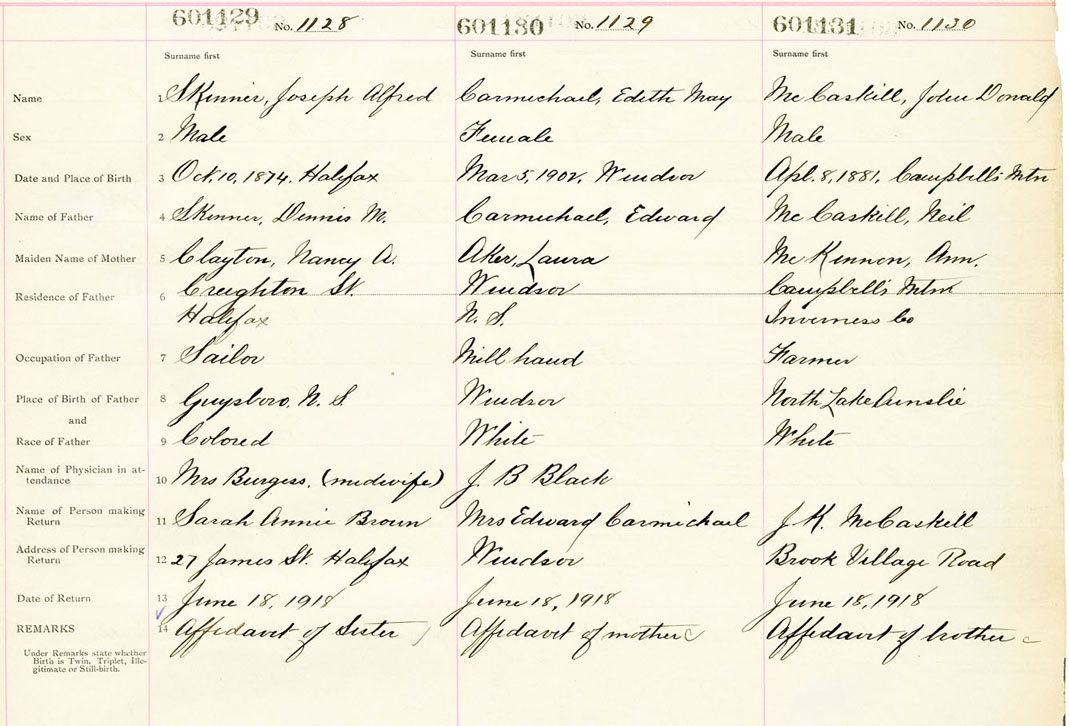 601129 No. 1128 601130 No. 1129 601131 No. 1130
Surname first Surname first Surname first
Name 1 Skinner, Joseph Alfred Carmichael, Edith May McCaskill, John Donald
Sex 2 Male Female Male
Date and Place of Birth 3 Oct. 10, 1874. Halifax Mar 5, 1902, Windsor Apl. 8, 1881, Campbell's Mtn
Name of Father 4 Skinner, Dennis M. Carmichael, Edward McCaskill, Neil
Maiden Name of Mother 5 Clayton, Nancy A. Aker, Laura McKinnon, Ann.
Residence of Father 6 Creighton St. Windsor Campbell's Mtn
Halifax N. S. Inverness Co
Occupation of Father 7 Sailor Mill hand Farmer
Place of Birth of Father 8 Guysboro, N. S. Windsor North Lake Ainslie
and
Race of Father 9 Colored White White
Name of Physician in at-
tendance 10 Mrs Burgess, (midwife) J. B Black
Name of Person making
Return 11 Sarah Annie Brown Mrs Edward Carmichael J. K. McCaskill
Address of Person making
Return 12 27 James St. Halifax Windsor Brook Village Road
Date of Return 13 June 18, 1918 June 18, 1918 June 18, 1918
REMARKS 14 Affidavit of Sister Affidavit of mother Affidavit of brother
Under Remarks state whether
Birth is Twin, Triplet, Ille-
gitimate or Still-birth.